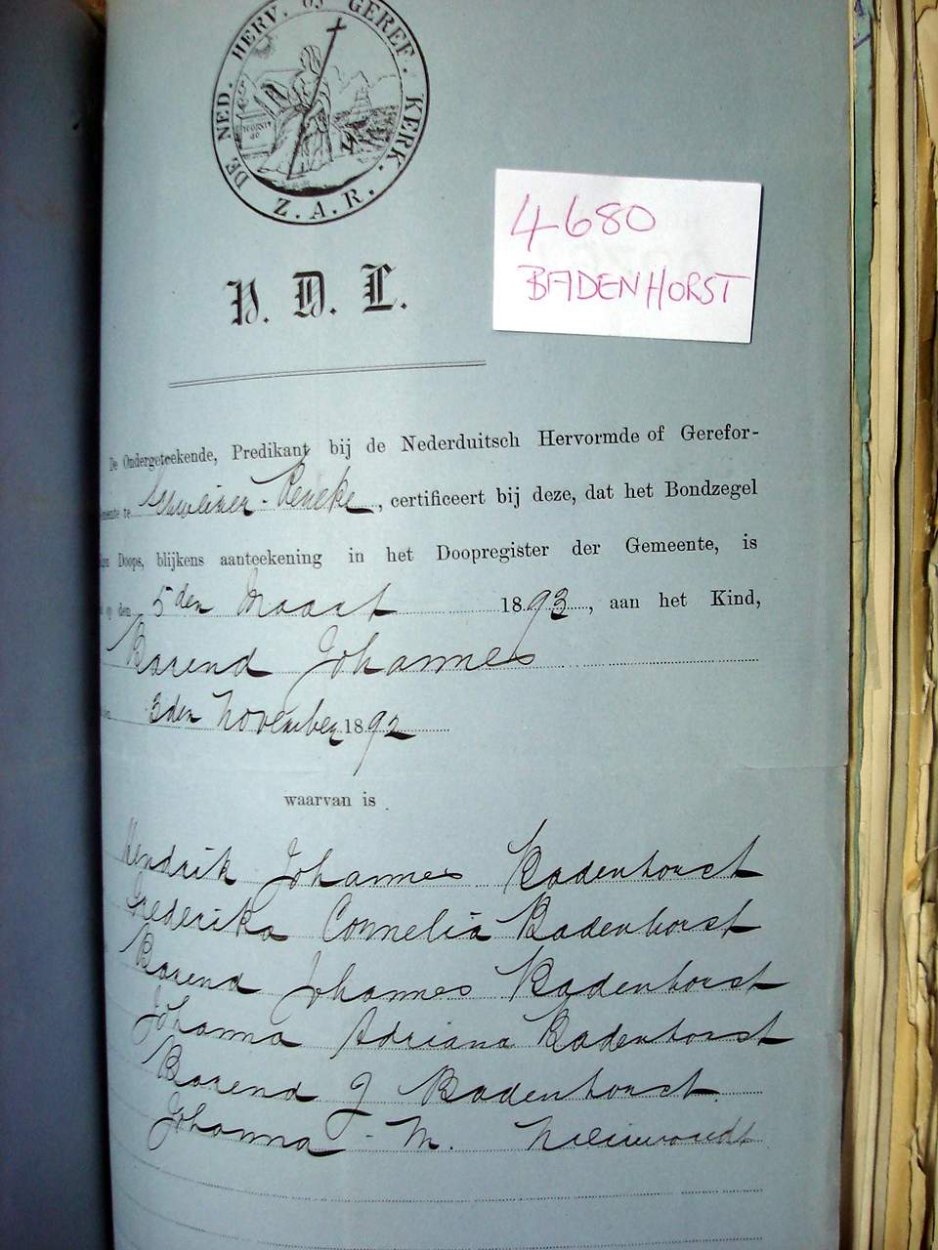 DE NED. HERV. OF GEREF. KERK. Z.A.R.
4680
BADENHORST
V. D. L.
De Ondergeteekende, Predikant bij de Nederduitsch Hervormde of Gerefor-
meente te Schweizer-Reneke, certificeert bij deze, dat het Bondzegel
Doops, blijkens aanteekening in het Doopregister der Gemeente, is
op den 5den Maart 1893, aan het Kind,
Barend Johannes
3den November 1892
waarvan is
Hendrik Johannes Badenhorst
Frederika Cornelia Badenhorst
Barend Johannes Badenhorst
Johanna Adriana Badenhorst
Barend J Badenhorst
Johanna M.